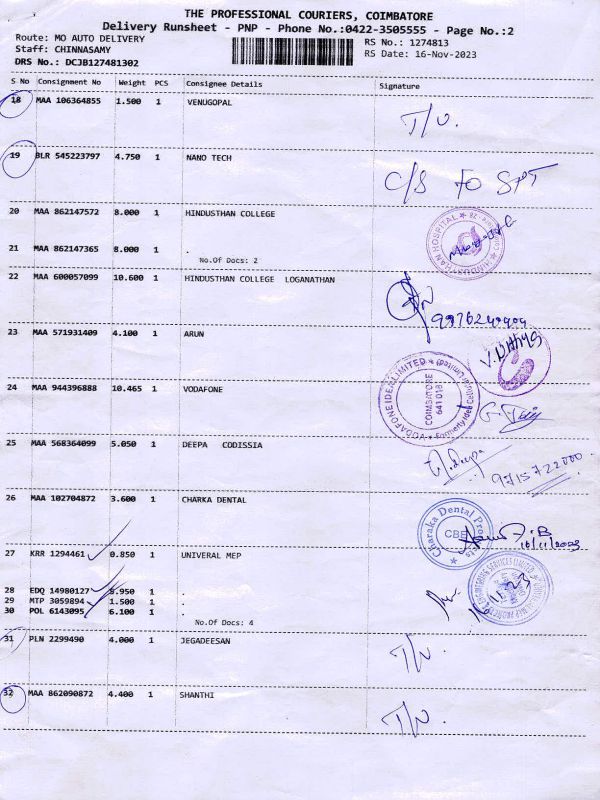 THE PROFESSIONAL COURIERS, COIMBATORE
Delivery Runsheet - PNP - Phone No.:0422-3505555 - Page No.:2
Route: MO AUTO DELIVERY
Staff: CHINNASAMY
DRS No.: DCJB127481302
RS No.: 1274813
RS Date: 16-Nov-2023
S No Consignment No Weight PCS Consignee Details Signature
18 MAA 106364855 1.500 1 VENUGOPAL
19 BLR 545223797 4.750 1 NANO TECH
C/S TO
20 MAA 862147572 8.000 1 HINDUSTHAN COLLEGE
HINDUSTHAN HOSPITAL
21 MAA 862147365 8.000 1 .
No.Of Docs: 2
22 MAA 600057099 10.600 1 HINDUSTHAN COLLEGE LOGANATHAN
23 MAA 571931409 4.100 1 ARUN
24 MAA 944396888 10.465 1 VODAFONE
VODAFONE IDEA LIMITED
COIMBATORE
641 018
25 MAA 568364099 5.050 1 DEEPA CODISSIA
9715722000
26 MAA 102704872 3.600 1 CHARKA DENTAL
Charaka Dental Products
CBE
16/11/2023
27 KRR 1294461 0.850 1 UNIVERAL MEP
28 EDQ 14980127 5.950 1 .
29 MTP 3059894 1.500 1 .
30 POL 6143095 6.100 1 .
No.Of Docs: 4
31 PLN 2299490 4.000 1 JEGADEESAN
32 MAA 862090872 4.400 1 SHANTHI